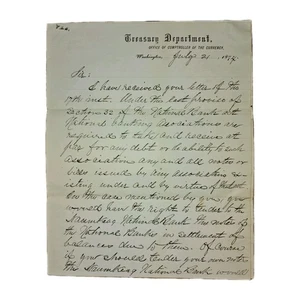 Treasury Department,
OFFICE OF COMPTROLLER OF THE CURRENCY,
Washington, July 21 1874
Sir:
I have received your letter of the
17th inst. Under the last proviso of
section 32 of the National Bank Act
National banking associations are
required to take and receive at
par for any debt or liability to such
associations any and all notes or
bills issued by any association ex-
isting under and by virtue of that act
In the case mentioned by you, you
would have the right to tender to the
Naumkeag National Bank the notes of
the National Banks in settlement of
balances due to them. Of course
if you should tender your own notes
the Naumkeag National Bank would